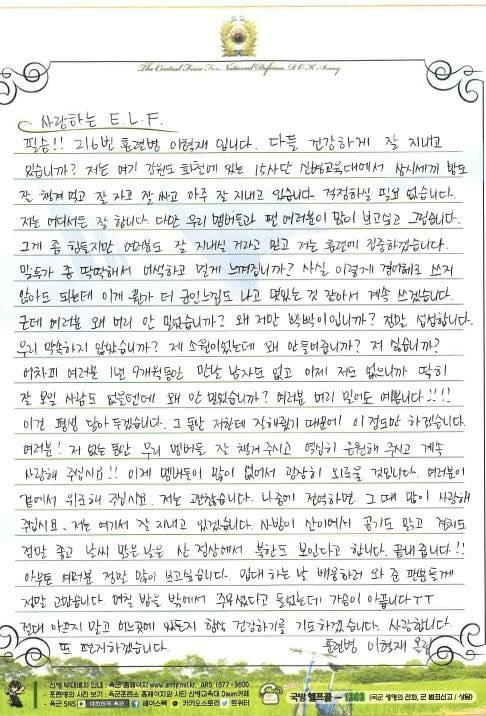 The Central Force For National Defense, R.O.K Army
사랑하는 E.L.F.
필승!! 216번 훈련병 이혁재 입니다. 다들 건강하게 잘 지내고
있습니까? 저는 여기 강원도 화천에 있는 15사단 신병교육대에서 삼시세끼 밥도
잘 챙겨 먹고 잘 자고 잘 싸고 아주 잘 지내고 있습니다. 걱정하실 필요 없습니다.
저는 어디서든 잘 합니다. 다만 우리 멤버들과 팬 여러분이 많이 보고싶고 그립습니다.
그게 좀 힘들지만 여러분도 잘 지내실 거라고 믿고 저는 훈련에 집중하겠습니다.
말투가 좀 딱딱해서 어색하고 멀게 느껴집니까? 사실 이렇게 경어체로 쓰지
않아도 되는데 이게 뭔가 더 군인느낌도 나고 멋있는 것 같아서 계속 쓰겠습니다.
근데 여러분 왜 머리 안 밀었습니까? 왜 저만 빡빡이입니까? 정말 섭섭합니다.
우리 약속하지 않았습니까? 제 소원이었는데 왜 안들어줍니까? 저 싫습니까?
어차피 여러분 1년 9개월동안 만날 남자도 없고 이제 저도 없으니까 딱히
잘 보일 사람도 없을텐데 왜 안 밀었습니까? 여러분 머리 밀어도 예쁩니다!!!!
이건 평생 담아두겠습니다. 그 동안 저한테 잘해줬기 때문에 이 정도만 하겠습니다.
여러분! 저 없는동안 우리 멤버들 잘 챙겨주시고 열심히 응원해 주시고 계속
사랑해 주십시요!! 이제 멤버들이 많이 없어서 굉장히 외로울 것입니다. 여러분이
곁에서 위로해 주십시요. 저는 괜찮습니다. 나중에 전역하면 그 때 많이 사랑해
주십시요. 저는 여기서 잘 지내고 있겠습니다. 사방이 산이에서 공기도 맑고 경치도
정말 좋고 날씨 맑은 날은 산 정상에서 북한도 보인다고 합니다. 끝내줍니다!!
아무튼 여러분 정말 많이 보고싶습니다. 입대하는 날 배웅하러 와 준 팬분들께
정말 고맙습니다. 며칠 밤을 밖에서 주무셨다고 들었는데 가슴이 아픕니다ㅜㅜ
절대 아프지 말고 어느곳에 있든지 항상 건강하기를 기도하겠습니다. 사랑합니다.
또 편지하겠습니다. 훈련병 이혁재 올림
- 신병 부대배치 안내 : 육군 홈페이지 www.army.mil.kr, ARS 1577-9600
- 훈련병의 사진 보기 : 육군훈련소 홈페이지와 사단 신병교육대 Daum카페
- 육군 SNS 대한민국 육군 페이스북 카카오스토리 트위터
국방헬프콜 - 1303 (국군 생명의 전화, 군 범죄신고 / 상담)